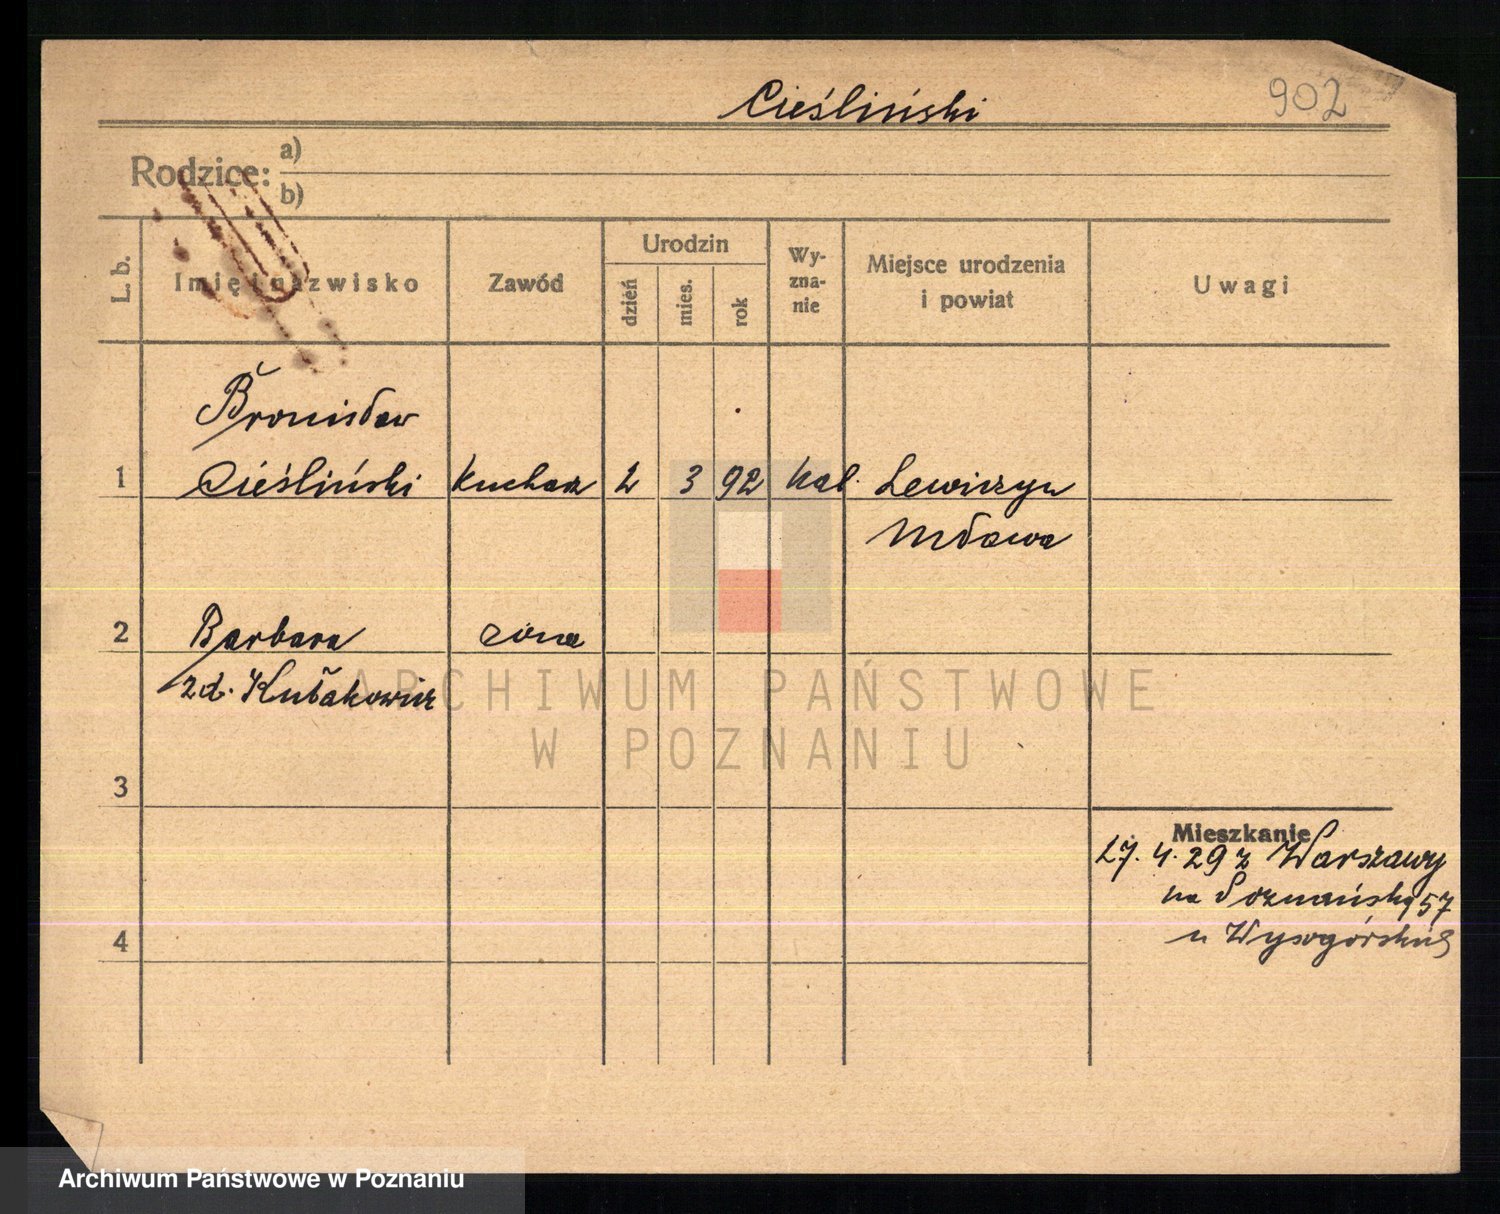 Cieśliński
902
Rodzice: a)
b)
L. b.
Imię i nazwisko
Zawód
Urodzin
dzień
mies.
rok
Wy-
zna-
nie
Miejsce urodzenia
i powiat
Uwagi
Bronisław
1 Cieśliński kucharz 2 3 92 kat. Lewiczyn
Mława
2 Barbara żona
zd. Kułakowicz
ARCHIWUM PAŃSTWOWE
W POZNANIU
3
Mieszkanie
27. 4. 29 z Warszawy
na Poznańską 57
u Wysogórskiej
4
Archiwum Państwowe w Poznaniu